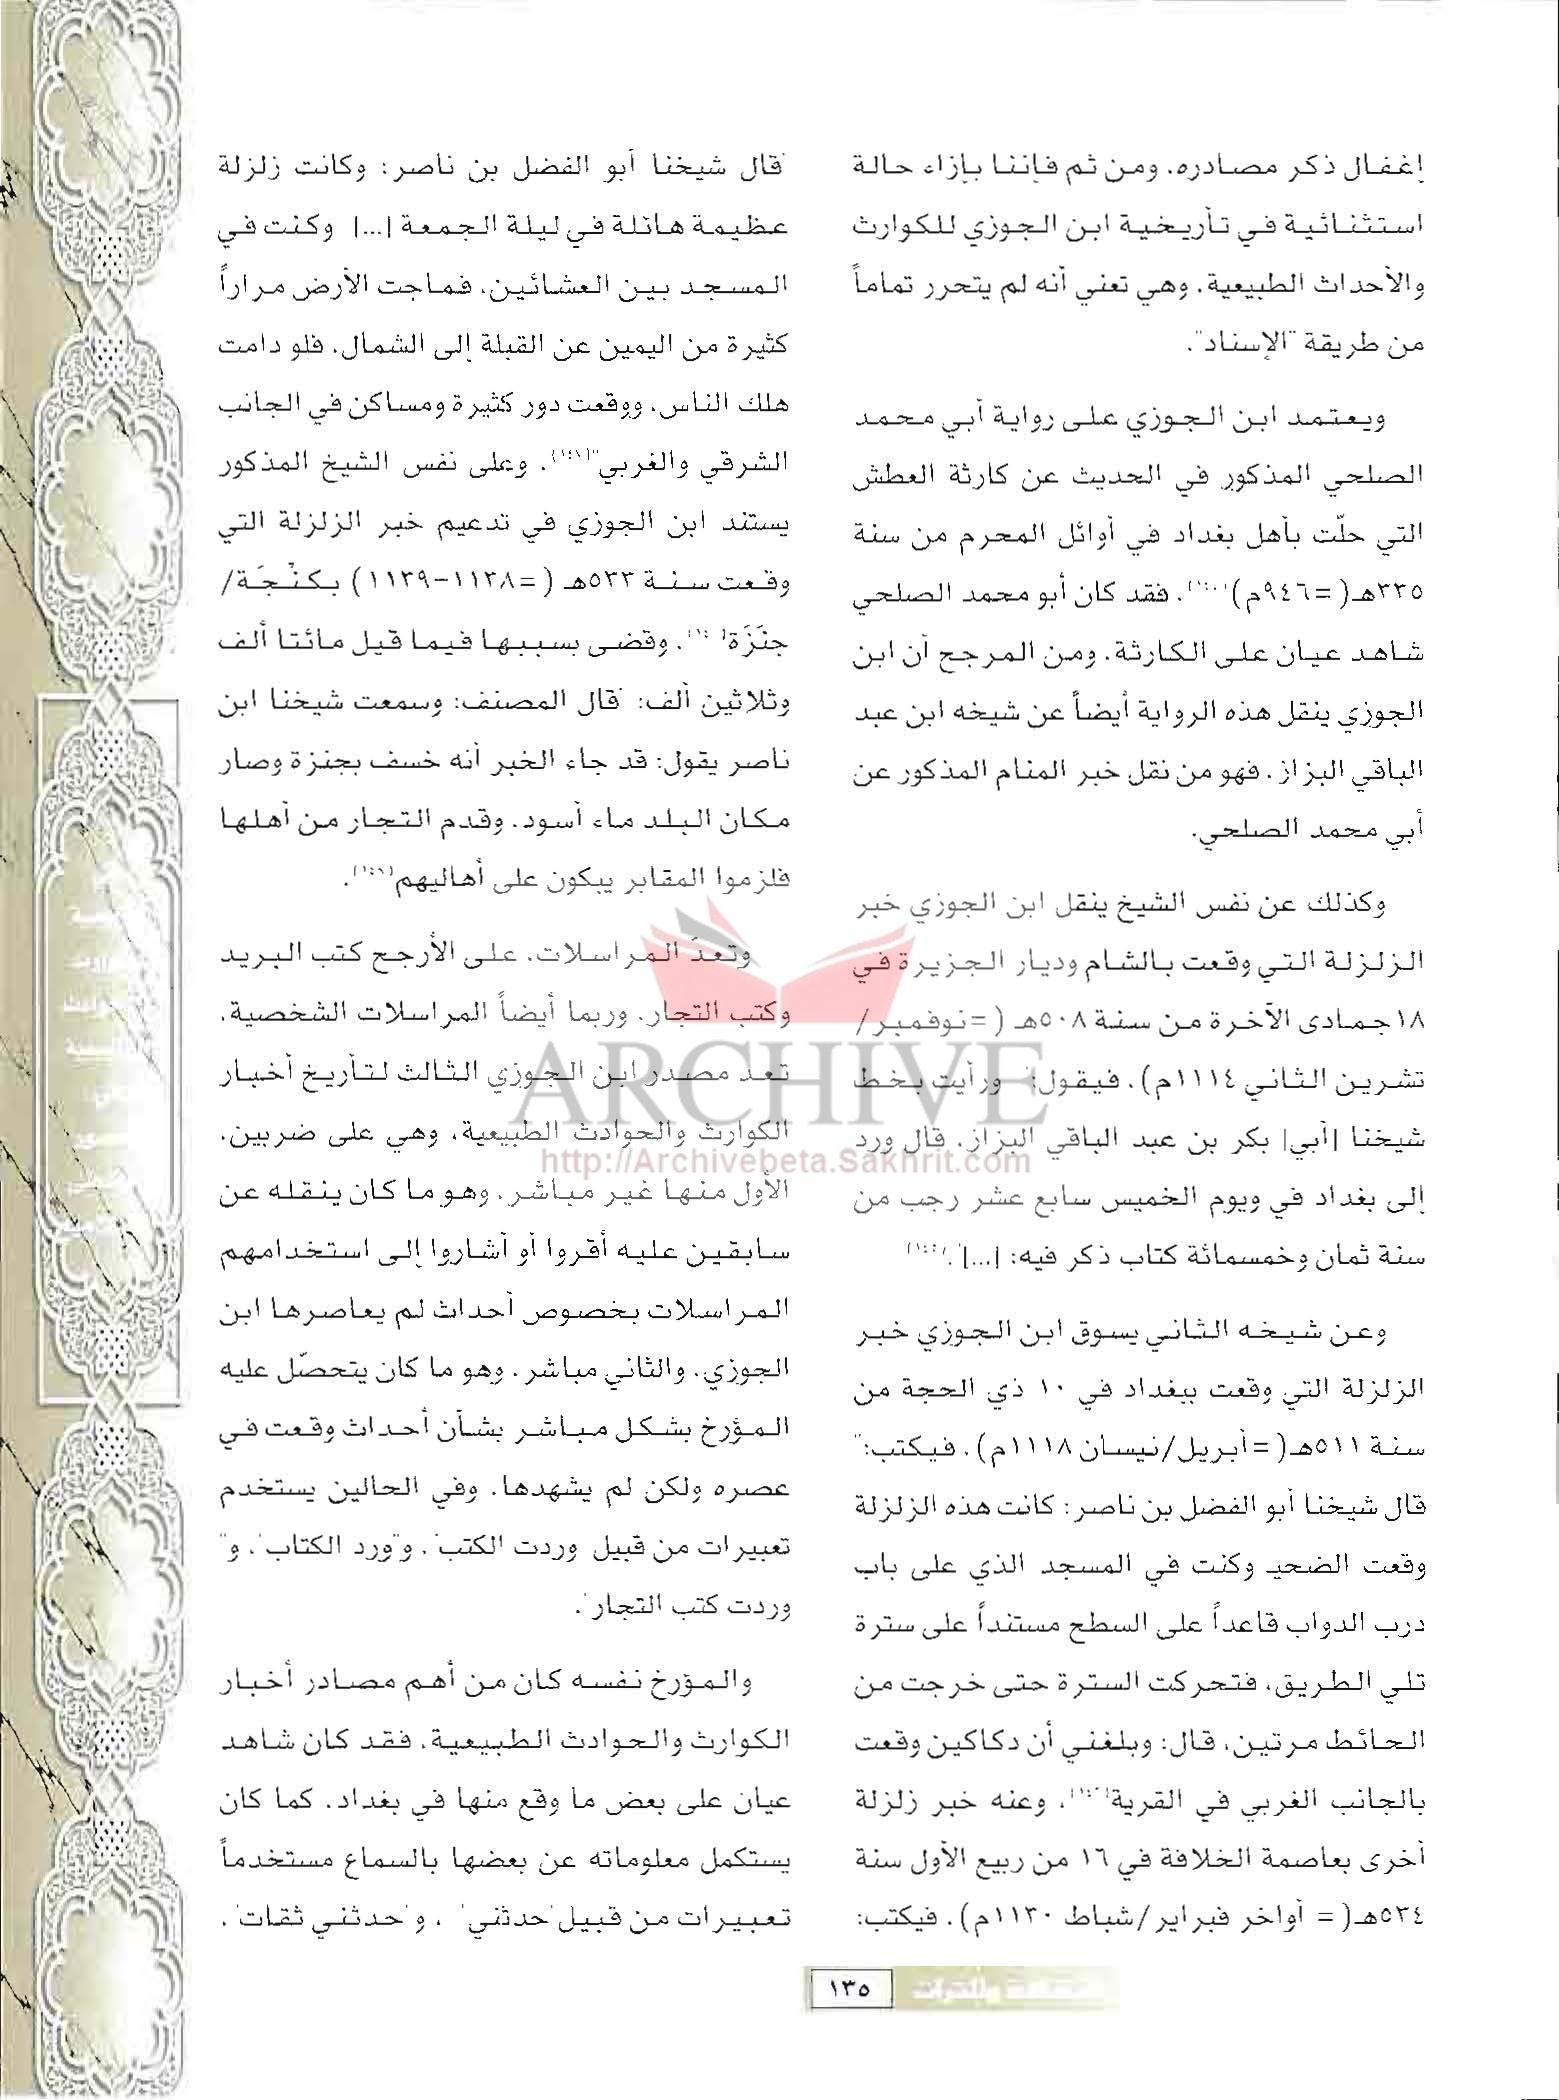 إغفال ذكر مصادره. ومن ثم فإننا بإزاء حالة
استثنائية في تأريخية ابن الجوزي للكوارث
والأحداث الطبيعية. وهي تعني أنه لم يتحرر تماماً
من طريقة "الإسناد".
ويعتمد ابن الجوزي على رواية أبي محمد
الصلحي المذكور في الحديث عن كارثة العطش
التي حلّت بأهل بغداد في أوائل المحرم من سنة
٣٣٥هـ(=٩٤٦م). فقد كان أبو محمد الصلحي
شاهد عيان على الكارثة. ومن المرجح أن ابن
الجوزي ينقل هذه الرواية أيضاً عن شيخه ابن عبد
الباقي البزاز. فهو من نقل خبر المنام المذكور عن
أبي محمد الصلحي.
وكذلك عن نفس الشيخ ينقل ابن الجوزي خبر
الزلزلة التي وقعت بالشام وديار الجزيرة في
١٨جمادى الآخرة من سنة ٥٠٨هـ (=نوفمبر/
تشرين الثاني ١١١٤م). فيقول: ورأيت بخط
شيخنا [أبي] بكر بن عبد الباقي البزاز. قال ورد
إلى بغداد في ويوم الخميس سابع عشر رجب من
سنة ثمان وخمسمائة كتاب ذكر فيه: [...]".
وعن شيخه الثاني يسوق ابن الجوزي خبر
الزلزلة التي وقعت ببغداد في ١٠ ذي الحجة من
سنة ٥١١هـ(=أبريل/نيسان ١١١٨م). فيكتب:"
قال شيخنا أبو الفضل بن ناصر: كانت هذه الزلزلة
وقعت الضحيـ وكنت في المسجد الذي على باب
درب الدواب قاعداً على السطح مستنداً على سترة
تلي الطريق، فتحركت السترة حتى خرجت من
الحائط مرتين، قال: وبلغني أن دكاكين وقعت
بالجانب الغربي في القرية. وعنه خبر زلزلة
أخرى بعاصمة الخلافة في ١٦ من ربيع الأول سنة
٥٢٤هـ(= أواخر فبراير/شباط ١١٣٠م). فيكتب:
قال شيخنا أبو الفضل بن ناصر: وكانت زلزلة
عظيمة هائلة في ليلة الجمعة [...] وكنت في
المسجد بين العشائين، فماجت الأرض مراراً
كثيرة من اليمين عن القبلة إلى الشمال. فلو دامت
هلك الناس، ووقعت دور كثيرة ومساكن في الجانب
الشرقي والغربي". وعلى نفس الشيخ المذكور
يستند ابن الجوزي في تدعيم خبر الزلزلة التي
وقعت سنة ٥٣٣هـ (=١١٣٨-١١٣٩) بكنْجَة/
جنَزَة. وقضى بسببها فيما قيل مائتا ألف
وثلاثين ألف: قال المصنف: وسمعت شيخنا ابن
ناصر يقول: قد جاء الخبر أنه خسف بجنزة وصار
مكان البلد ماء أسود. وقدم التجار من أهلها
فلزموا المقابر يبكون على أهاليهم.
وتعدّ المراسلات، على الأرجح كتب البريد
وكتب التجار. وربما أيضاً المراسلات الشخصية،
تعد مصدر ابن الجوزي الثالث لتأريخ أخبار
الكوارث والحوادث الطبيعية، وهي على ضربين،
الأول منها غير مباشر. وهو ما كان ينقله عن
سابقين عليه أقروا أو أشاروا إلى استخدامهم
المراسلات بخصوص أحداث لم يعاصرها ابن
الجوزي. والثاني مباشر. وهو ما كان يتحصّل عليه
المؤرخ بشكل مباشر بشأن أحداث وقعت في
عصره ولكن لم يشهدها. وفي الحالين يستخدم
تعبيرات من قبيل وردت الكتب". و"ورد الكتاب". و"
وردت كتب التجار".
والمؤرخ نفسه كان من أهم مصادر أخبار
الكوارث والحوادث الطبيعية. فقد كان شاهد
عيان على بعض ما وقع منها في بغداد. كما كان
يستكمل معلوماته عن بعضها بالسماع مستخدماً
تعبيرات من قبيل "حدثني" ، و"حدثني ثقات".
ARCHIVE
http://Archivebeta.Sakhrit.com
١٣٥